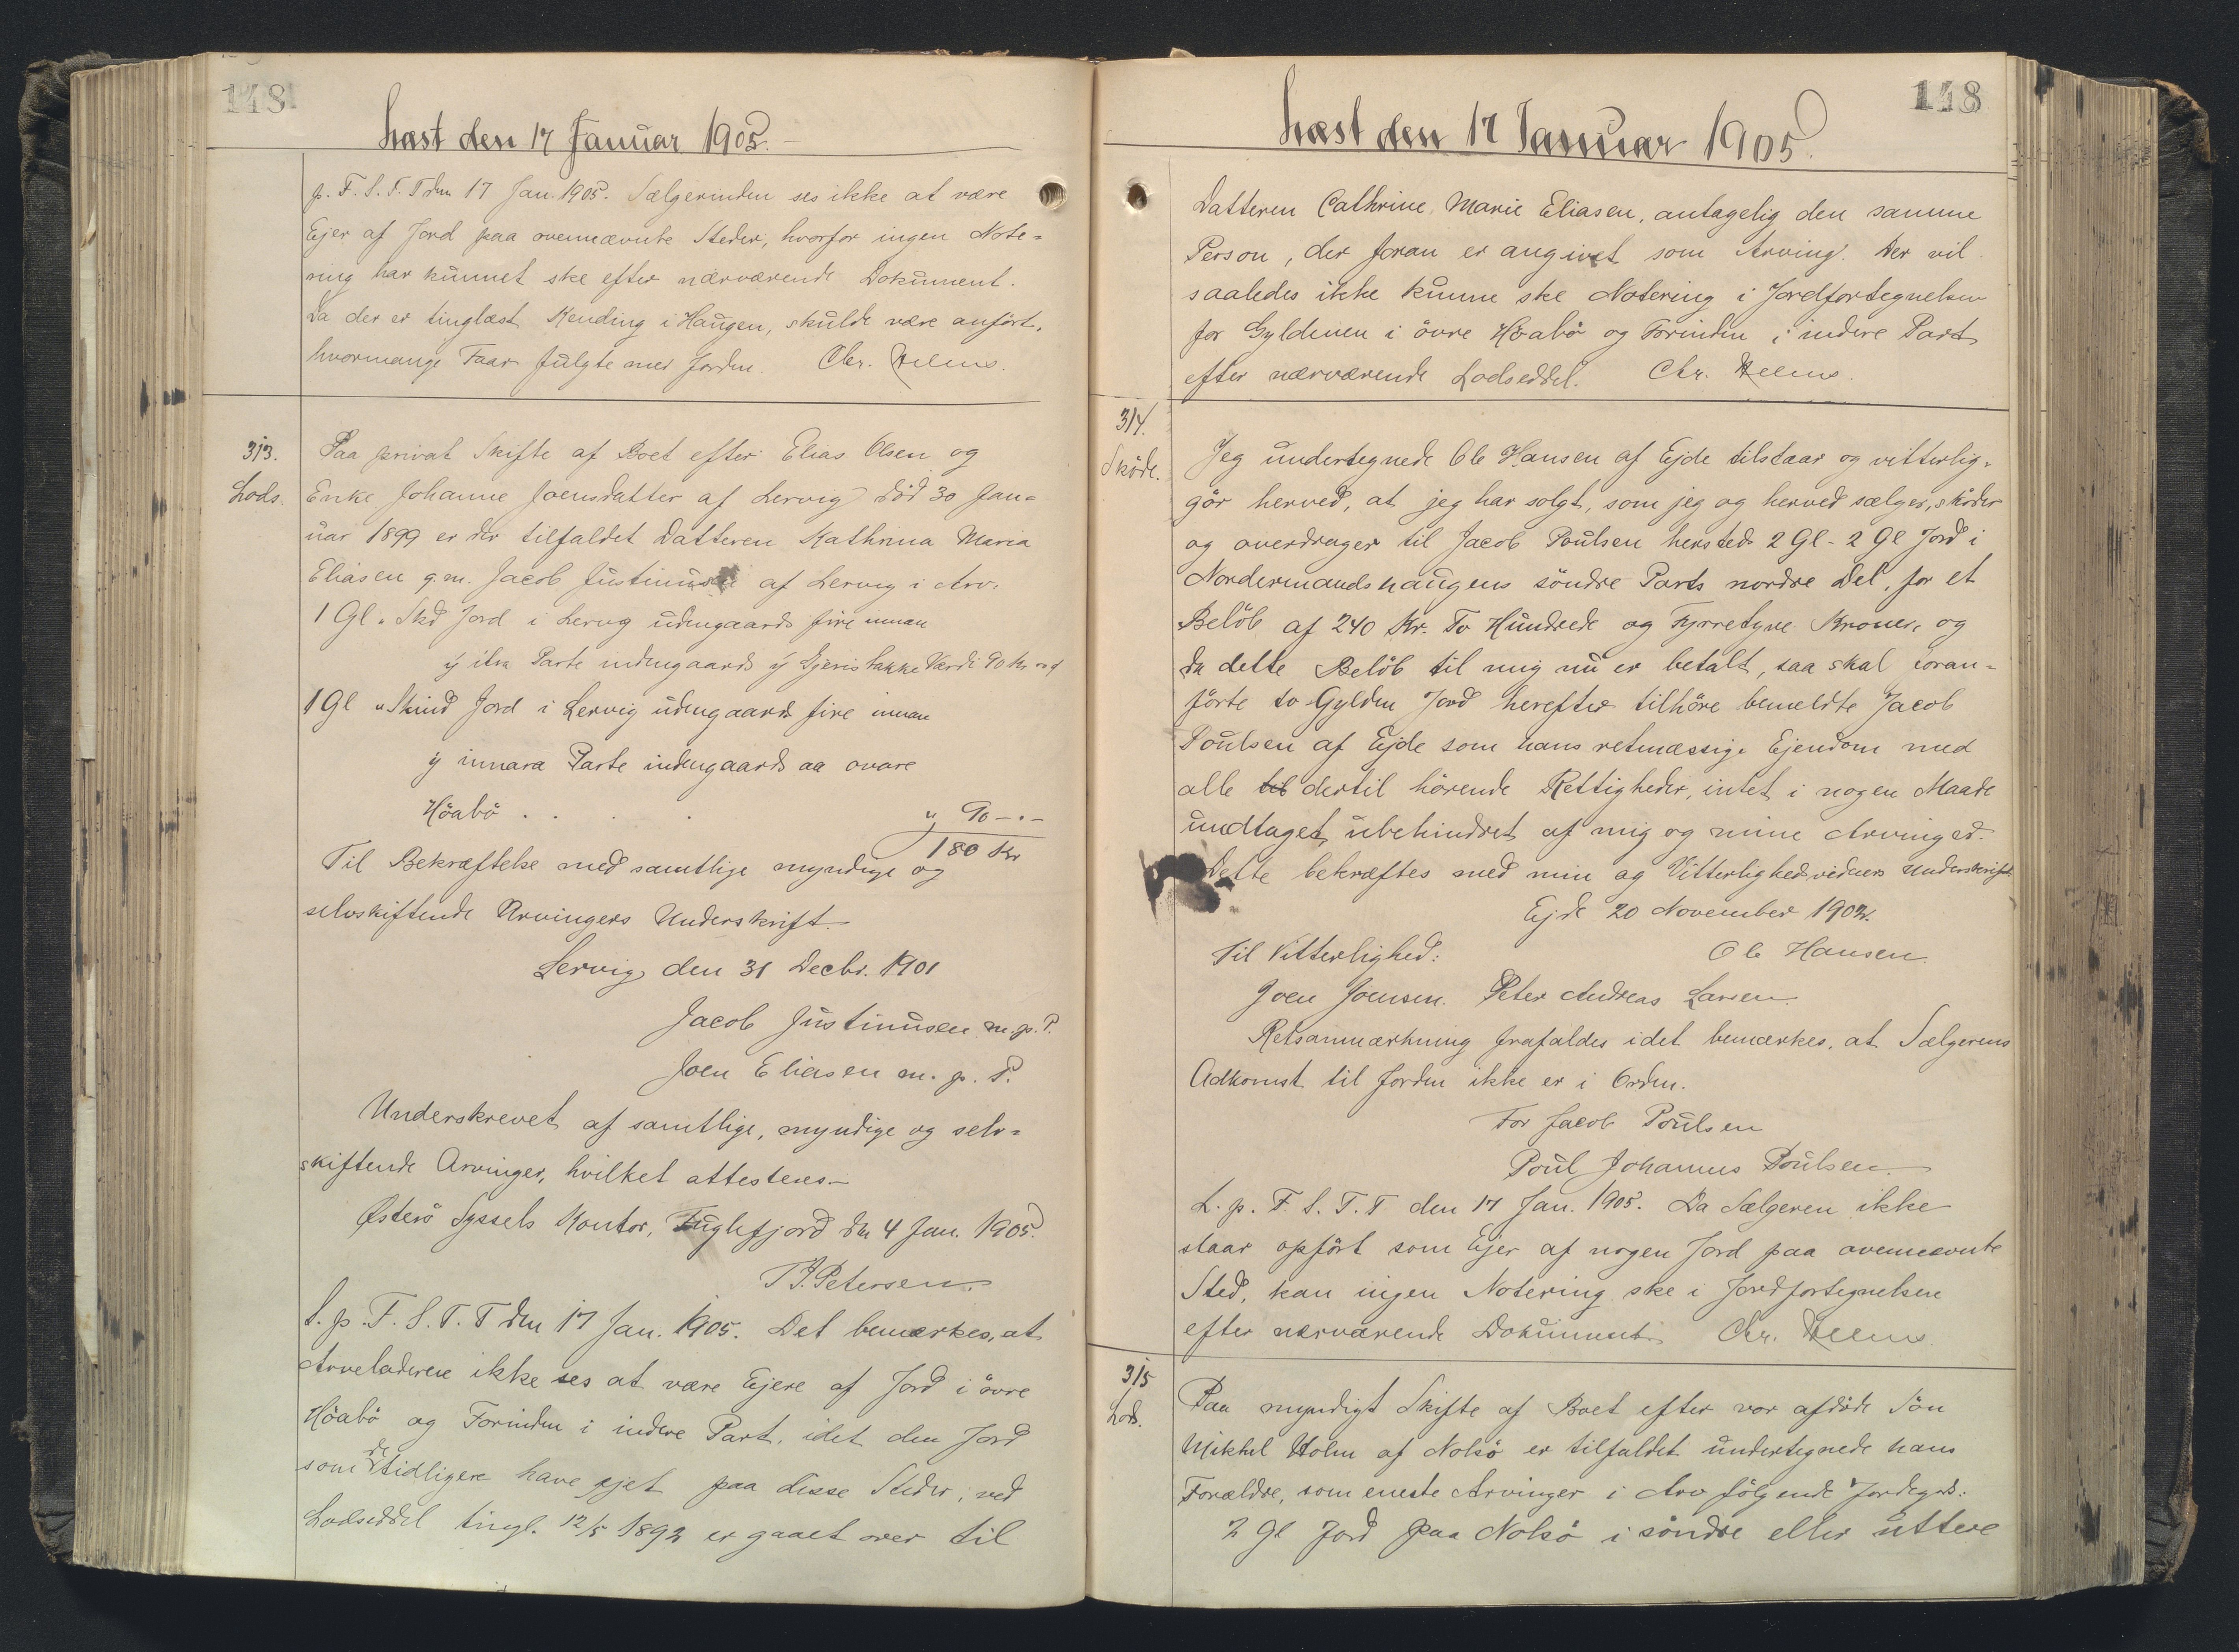 148
Læst den 17 Januar 1905.
p. F. S. T. T den 17 Jan. 1905. Sælgerinden ses ikke at være
Ejer af Jord paa ovennævnte Steder, hvorfor ingen Note=
ring har kunnet ske efter nærværende Dokument.
Da der er tinglæst Kending i Haugen, skulde være anført,
hvormange Faar fulgte med Jorden. Chr. Helms.
313.
Lods.
Paa privat Skifte af Boet efter Elias Olsen og
Enke Johanne Joensdatter af Lervig død 30 Jan=
uar 1899 er der tilfaldet Datteren Kathrina Maria
Eliasen g. m. Jacob Justinusen af Lervig i Arv:
1 Gl " Skd Jord i Lervig udengaards fire innan
ij Parte indengaards ij Værdi 90 Kr
1 Gl " Skind Jord i Lervig udengaards fire innan
ij innara Parte indengaards aa ovare
Höabö . . . . " 90 - " -
180 Kr
Til Bekræftelse med samtlige myndige og
selvskiftende Arvingers Underskrift.
Lervig, den 31 Decbr. 1901
Jacob Justinusen m. p. P.
Joen Eliasen m. p. P.
Underskrevet af samtlige, myndige og selv=
skiftende Arvinger, hvilket attesteres.
Østerö Syssels Kontor, Fuglefjord den 4 Jan. 1905.
Petersen.
L. p. F. S. T. T den 17 Jan. 1905. Det bemærkes, at
Arveladerene ikke ses at være Ejere af Jord i övre
Höabö og Forinden i indere Part, idet den Jord
som de tidligere have ejet paa disse Steder, ved
Lodseddel tingl. 12/5 1892 er gaaet over til
148
Læst den 17 Januar 1905.
Datteren Cathrine Marie Eliasen, antagelig den samme
Person, der foran er angivet som Arving. Der vil
saaledes ikke kunne ske Notering i Jordfortegnelsen
for Gyldenen i övre Höabö og Forinden i indere Part
efter nærværende Lodseddel. Chr. Helms.
314.
Sköde.
Jeg undertegnede Ole Hansen af Ejde tilstaar og vitterlig=
gör herved, at jeg har solgt, som jeg og herved sælger, sköder
og overdrager til Jacob Poulsen hersteds 2 Gl - 2 Gl Jord i
Nordermandshaugens söndre Parts nordre Del, for et
Belöb af 240 Kr. To Hundrede og Fyrretyve Kroner, og
da dette Belöb til mig nu er betalt, saa skal foran=
förte to Gylden Jord herefter tilhöre bemeldte Jacob
Poulsen af Ejde som hans retmæssige Ejendom med
alle til dertil hörende Rettigheder, intet i nogen Maade
undtaget, ubehindret af mig og mine Arvinger.
Dette bekræftes med min og Vitterlighedsvidners Underskrift.
Ejde 20 November 1902.
Til Vitterlighed: Ole Hansen.
Joen Joensen. Peter Andreas Larsen.
Retsanmærkning frafaldes idet bemærkes, at Sælgerens
Adkomst til Jorden ikke er i Orden.
For Jacob Poulsen
Poul Johannes Poulsen.
L. p. F. S. T. T den 17 Jan. 1905. Da Sælgeren ikke
staar opfört som Ejer af nogen Jord paa ovennævnte
Sted, kan ingen Notering ske i Jordfortegnelsen
efter nærværende Dokument. Chr. Helms.
315
Lods.
Paa myndigt Skifte af Boet efter vor afdöde Sön
Mikkel Holm af Nolsö er tilfaldet undertegnede hans
Forældre, som eneste Arvinger i Arv fölgende Jordegods:
2 Gl Jord paa Nolsö i söndre eller uttere